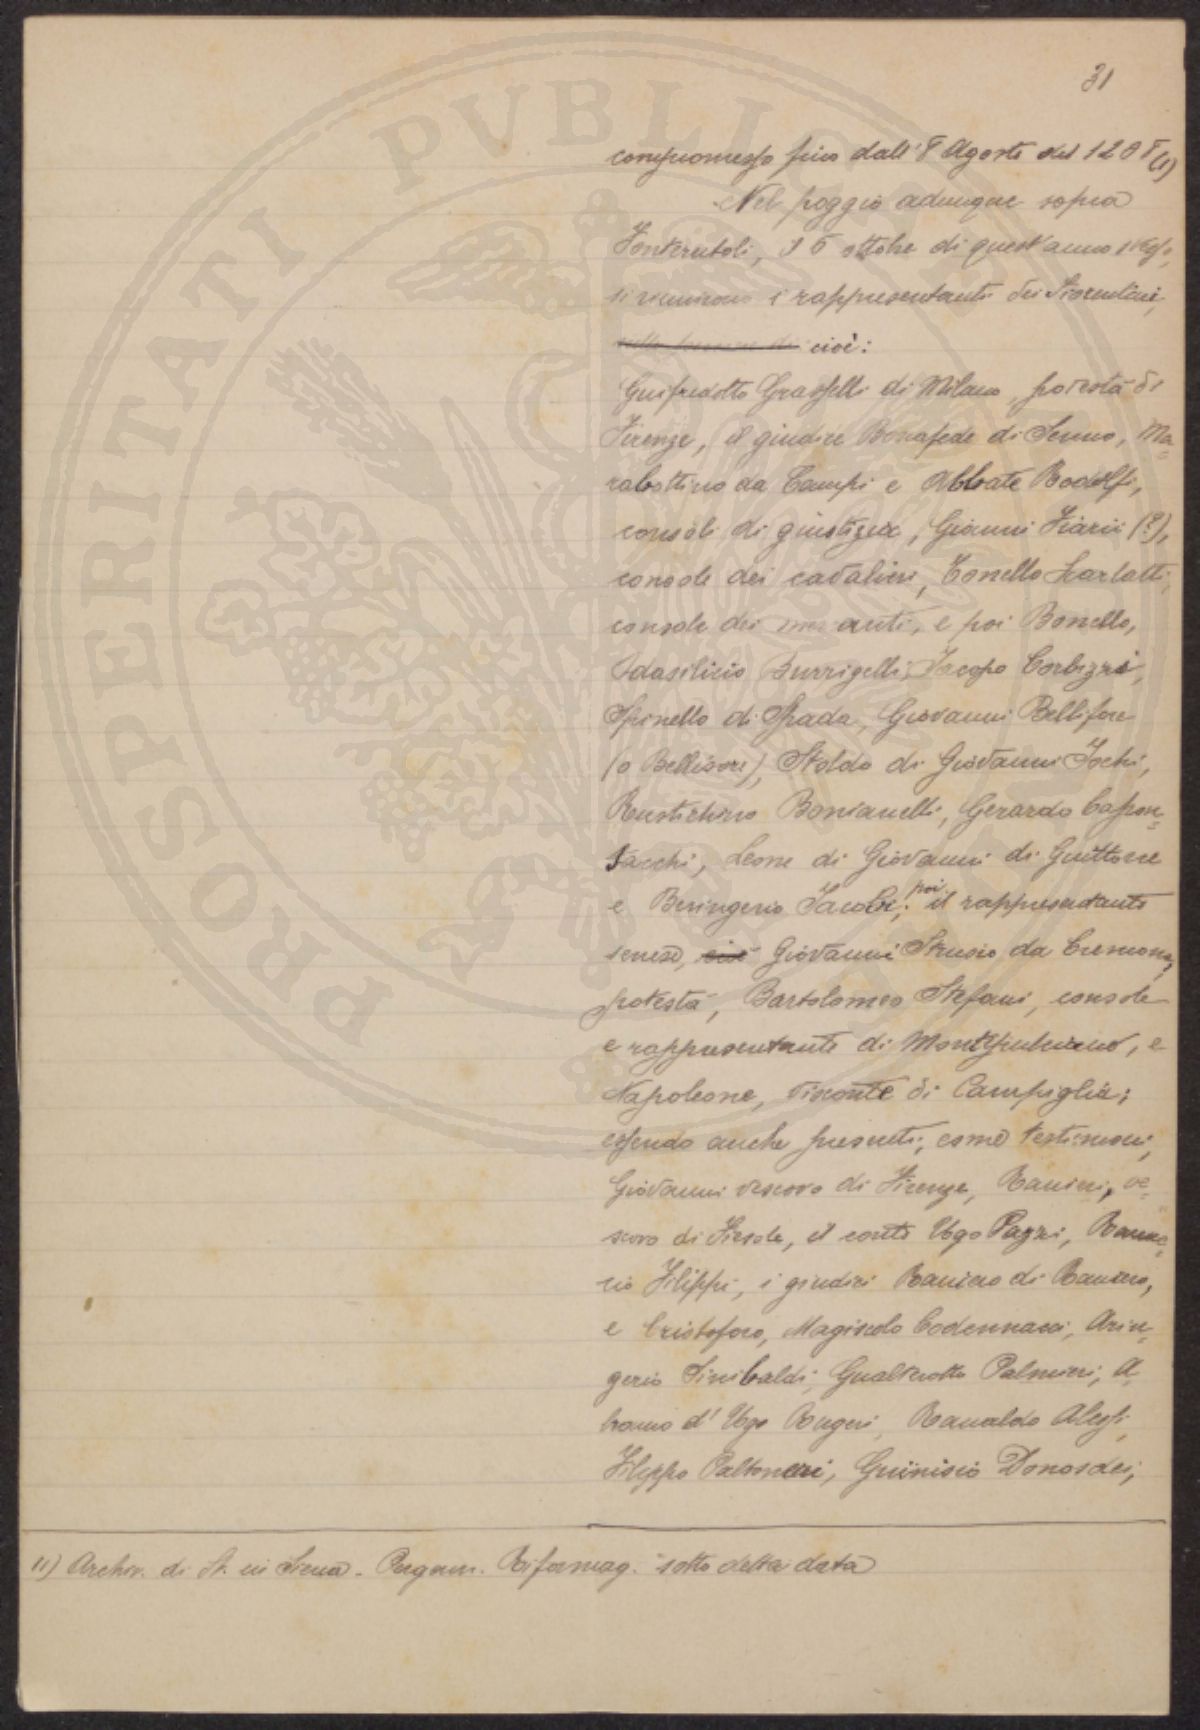 31
compromesso fino dall' 8 Agosto del 1208 (1)
Nel poggio adunque sopra
Fonterutoli, il 6 ottobre di quest'anno stesso,
si riunirono i rappresentanti dei Fiorentini,
cioè:
Guifredotto Grasselli di Milano, potestà di
Firenze, il giudice Bonafede di Senno, Ma=
rabottino da Campi e Abbate Rodolfi,
consoli di giustizia, Gianni (?),
console dei cavalieri, Tonello Scarlatti,
console dei mercanti, e poi Bonello,
Burrigelli, Jacopo Corbizzi,
Spinello di Spada, Giovanni Bellifore
(o Bellisore), Stoldo di Giovanni Jochi,
Rustichino Gerardo Capon=
sacchi, Leone di Giovanni di Guittone
e Beringerio Jacobi; poi il rappresentante
senese, cioè Giovanni Strusio da Cremona,
potestà, Bartolomeo Stefani, console
e rappresentante di Montepulciano, e
Napoleone, visconte di Campiglia;
essendo anche presenti, come testimoni,
Giovanni vescovo di Firenze, Ranieri, ve=
scovo di Fiesole, il conte Ugo Pazzi,
Filippi, i giudici Raniero di Raniero,
e Cristoforo, Magiscolo Codennacci, Arin=
gerio Sinibaldi, Gualterotto Palmieri, A=
d' Ugo Rugeri, Ranaldo Alessi,
Filippo Paltoneri, Guinisio Donosdei,
(1) Archiv. di St. in Siena - Pergam. Riformag. sotto detta data
PROSPERITATI PVBLICAE